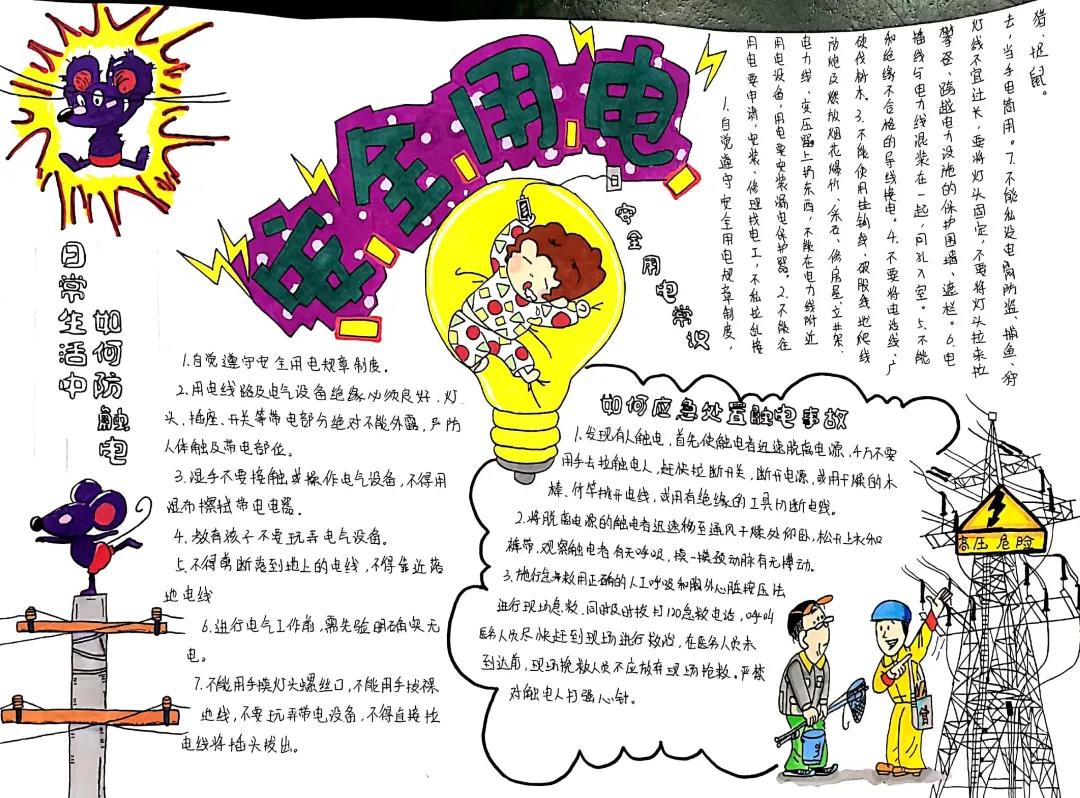 安全用电
日常生活中
如何防触电
1.自觉遵守安全用电规章制度.
2.用电线路及电气设备绝缘必须良好,灯
头、插座、开关等带电部分绝对不能外露,严防
人体触及带电部位。
3.湿手不要接触或操作电气设备,不得用
湿布擦拭带电电器.
4.教育孩子不要玩弄电气设备。
5.不得靠断落到地上的电线,不得靠近落
地电线
6.进行电气工作前,需先验明确实无
电。
7.不能用手摸灯头螺丝口,不能用手按裸
地线,不要玩弄带电设备,不得直接拉
电线将插头拔出。
安全用电常识
1.自觉遵守安全用电规章制度,
用电要申请,安装、修理找电工,不私拉乱接
用电设备,用电要安装漏电保护器。2.不能往
电力线、变压器上扔东西,不能在电力线附近
放炮及燃放烟花爆竹、采石、修房屋、立井架、
砍伐树木。3.不能使用挂钩线、破股线、地爬线
和绝缘不合格的导线接电。4.不要将电话线、广
播线与电力线混装在一起,同孔入室。5.不能
攀登、跨越电力设施的保护围墙、遮栏。6.电
灯线不宜过长,要将灯头固定,不要将灯头拉来拉
去,当手电筒用。7.不能私设电网防盗、捕鱼、狩
猎、捉鼠。
如何应急处置触电事故
1.发现有人触电,首先使触电者迅速脱离电源,千万不要
用手去拉触电人,赶快拉断开关,断开电源,或用干燥的木
棒、竹竿挑开电线,或用有绝缘的工具切断电线。
2.将脱离电源的触电者迅速移至通风干燥处仰卧,松开上衣和
裤带,观察触电者有无呼吸,摸一摸颈动脉有无搏动。
3.施行急救用正确的人工呼吸和胸外心脏按压法
进行现场急救,同时及时拨打120急救电话,呼叫
医务人员尽快赶到现场进行救治,在医务人员未
到达前,现场抢救人员不应放弃现场抢救。严禁
对触电人打强心针。
高压危险